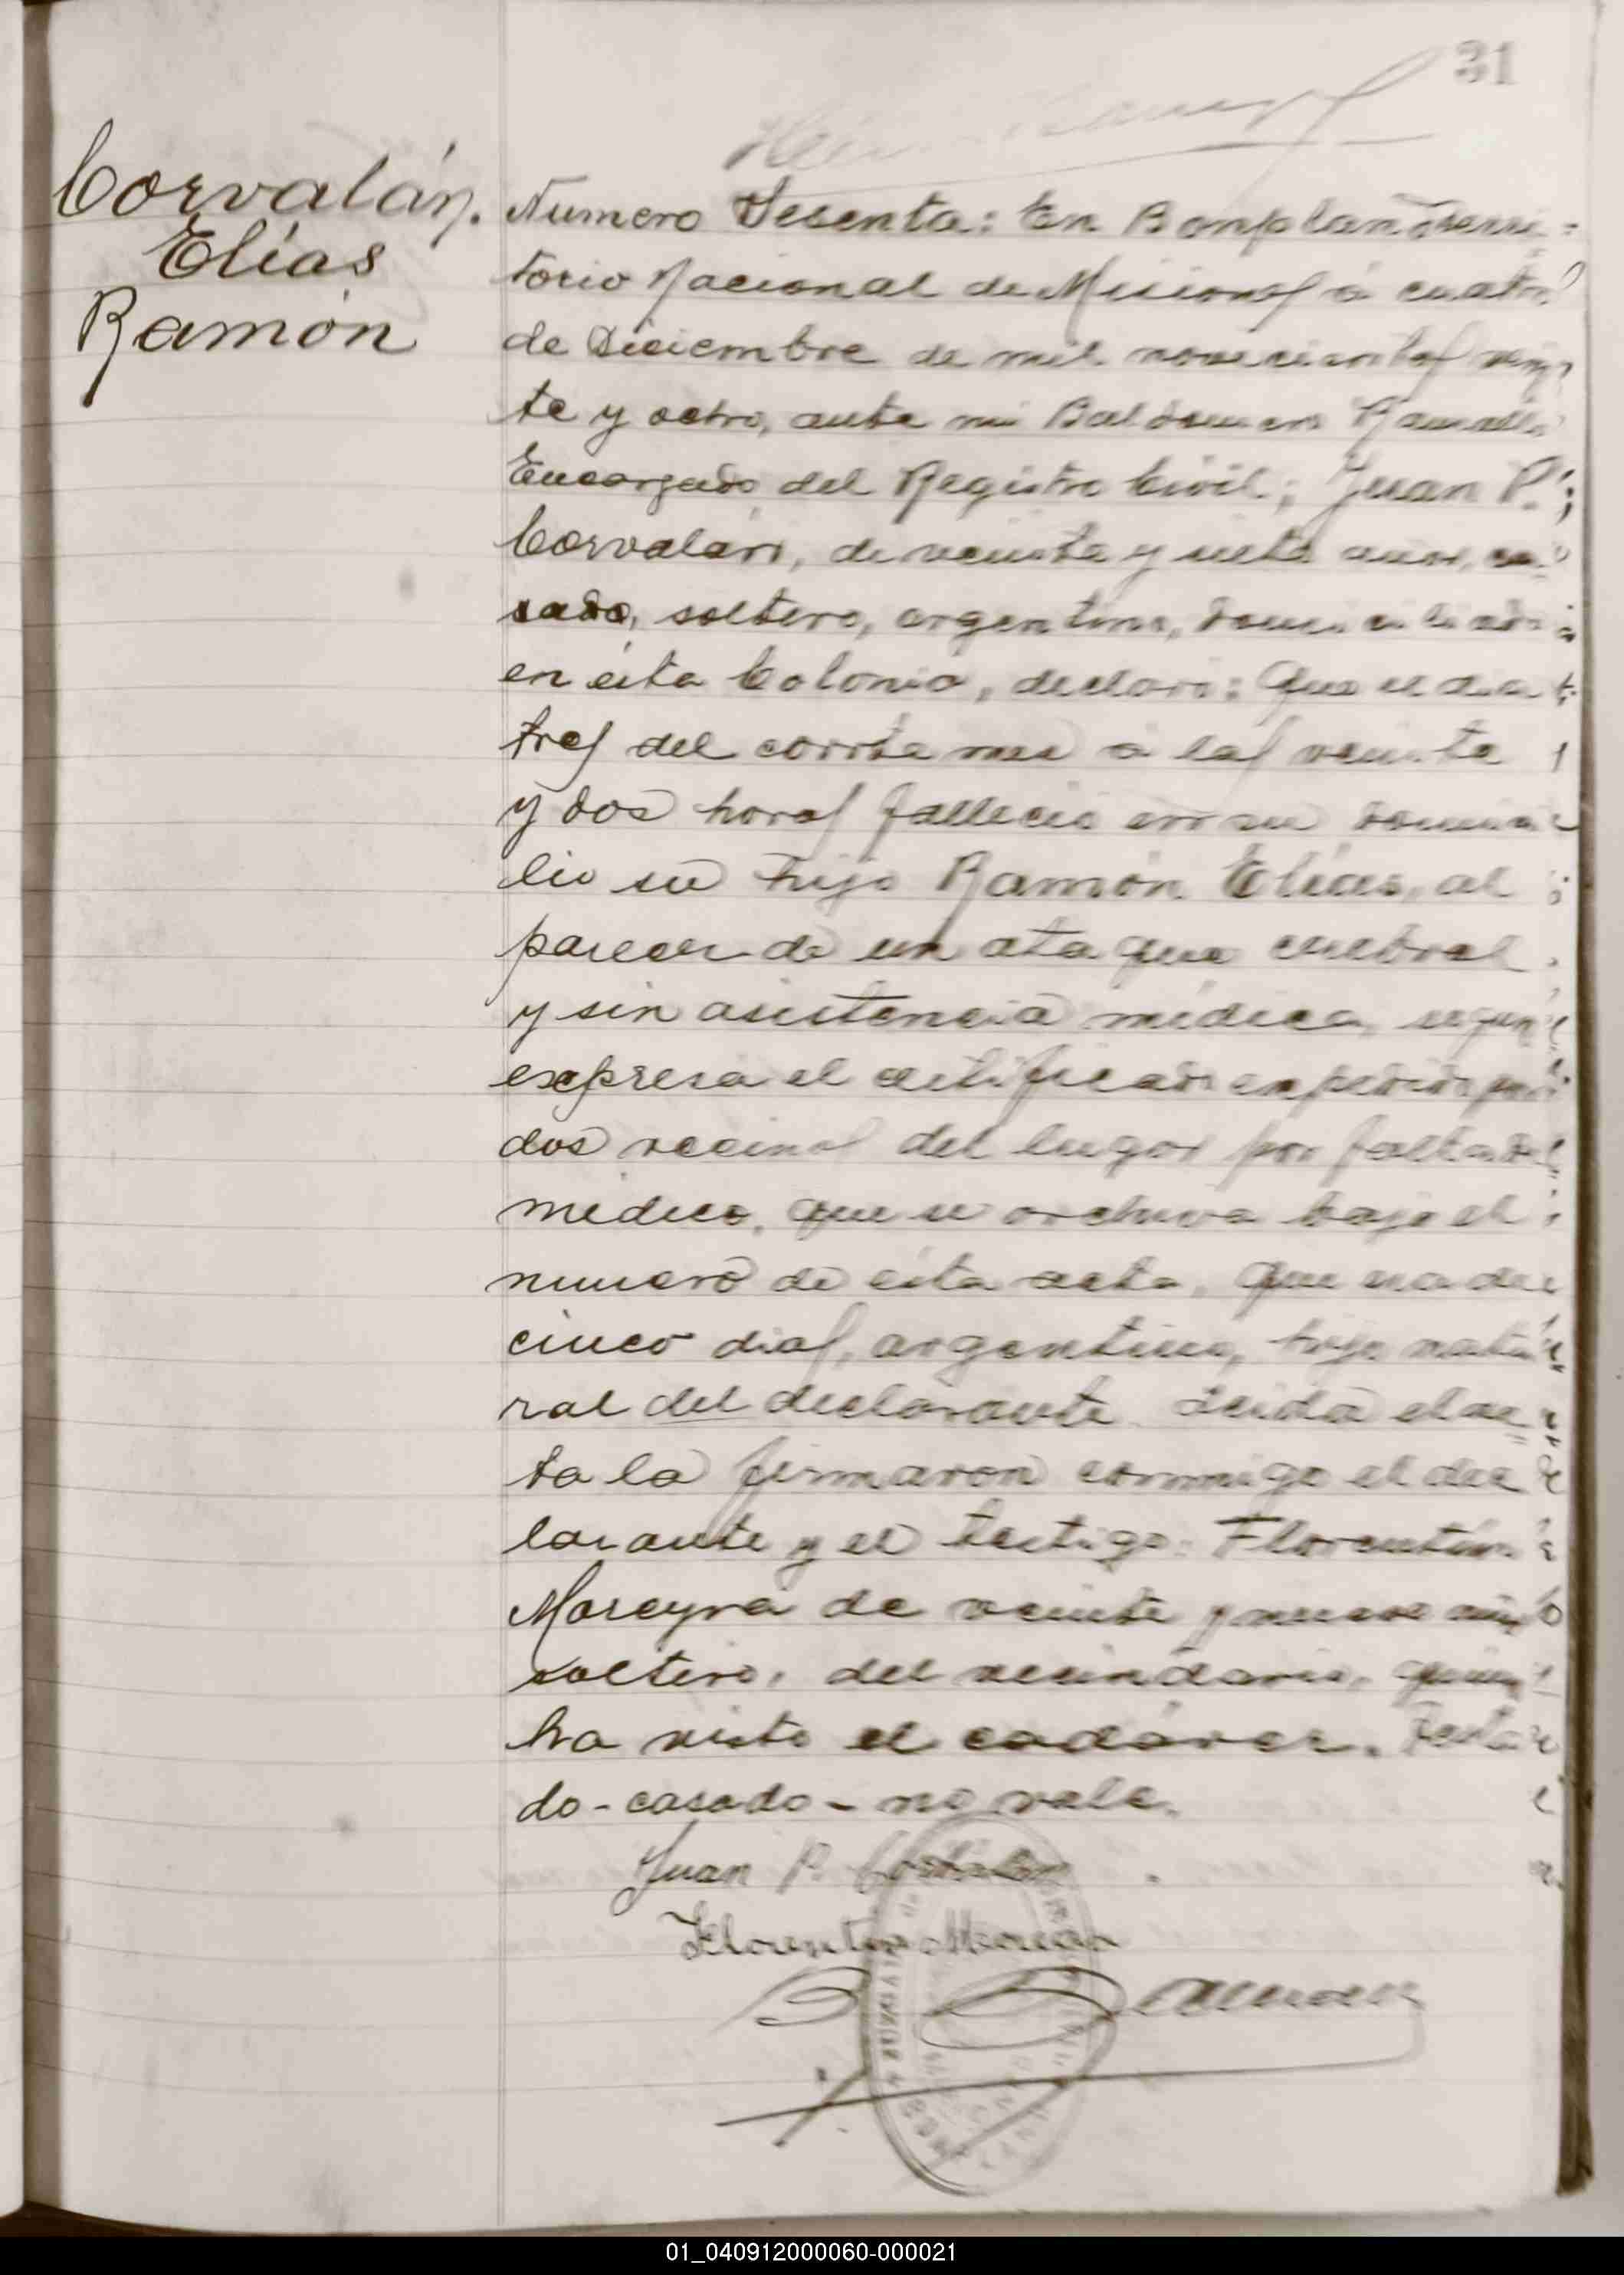 31
Corvalán.
Elías
Ramón
Numero Sesenta: En Bonpland Terri=
torio Nacional de Misiones á cuatro
de Diciembre de mil novecientos vein
te y ocho, ante mi Baldomero Ramallo
Encargado del Registro Civil; Juan P.
Corvalán, de veinte y siete años, ca
sado, soltero, argentino, domiciliado
en ésta Colonia, declaró: Que el dia
tres del corrte mes á las veinte
y dos horas falleció en su domici
lio su hijo Ramón Elías, al
parecer de un ataque cerebral
y sin asistencia médica, según
expresa el certificado expedido por
dos vecinos del lugar por falta de
médico, que se archiva bajo el
numero de ésta acta, que era de
cinco dias, argentino, hijo natu
ral del declarante. Leida el ac
ta la firmaron conmigo el dec
larante y el testigo: Florentín
Moreyra de veinte y nueve años
soltero, del vecindario, quien
ha visto el cadáver. Testa
do - casado - no vale.
Juan P. Corvalán
Florentin Moreira
01_040912000060-000021